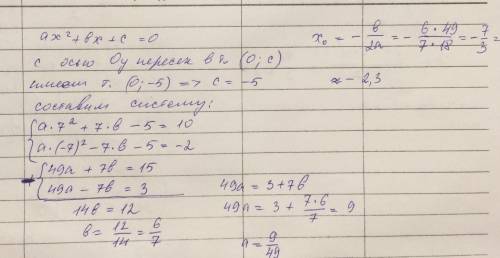 ax² + bx + c = 0
с осью Oy пересек в т. (0; c)
имеем т. (0; -5) => c = -5
составим систему:
{ a · 7² + 7 · b - 5 = 10
{ a · (-7)² - 7 · b - 5 = -2
+ { 49a + 7b = 15
{ 49a - 7b = 3
14b = 12
b = 12/14 = 6/7
49a = 3 + 7b
49a = 3 + 7·6/7 = 9
a = 9/49
x₀ = - b/2a = - 6 · 49/7 · 18 = - 7/3 =
≈ - 2,3